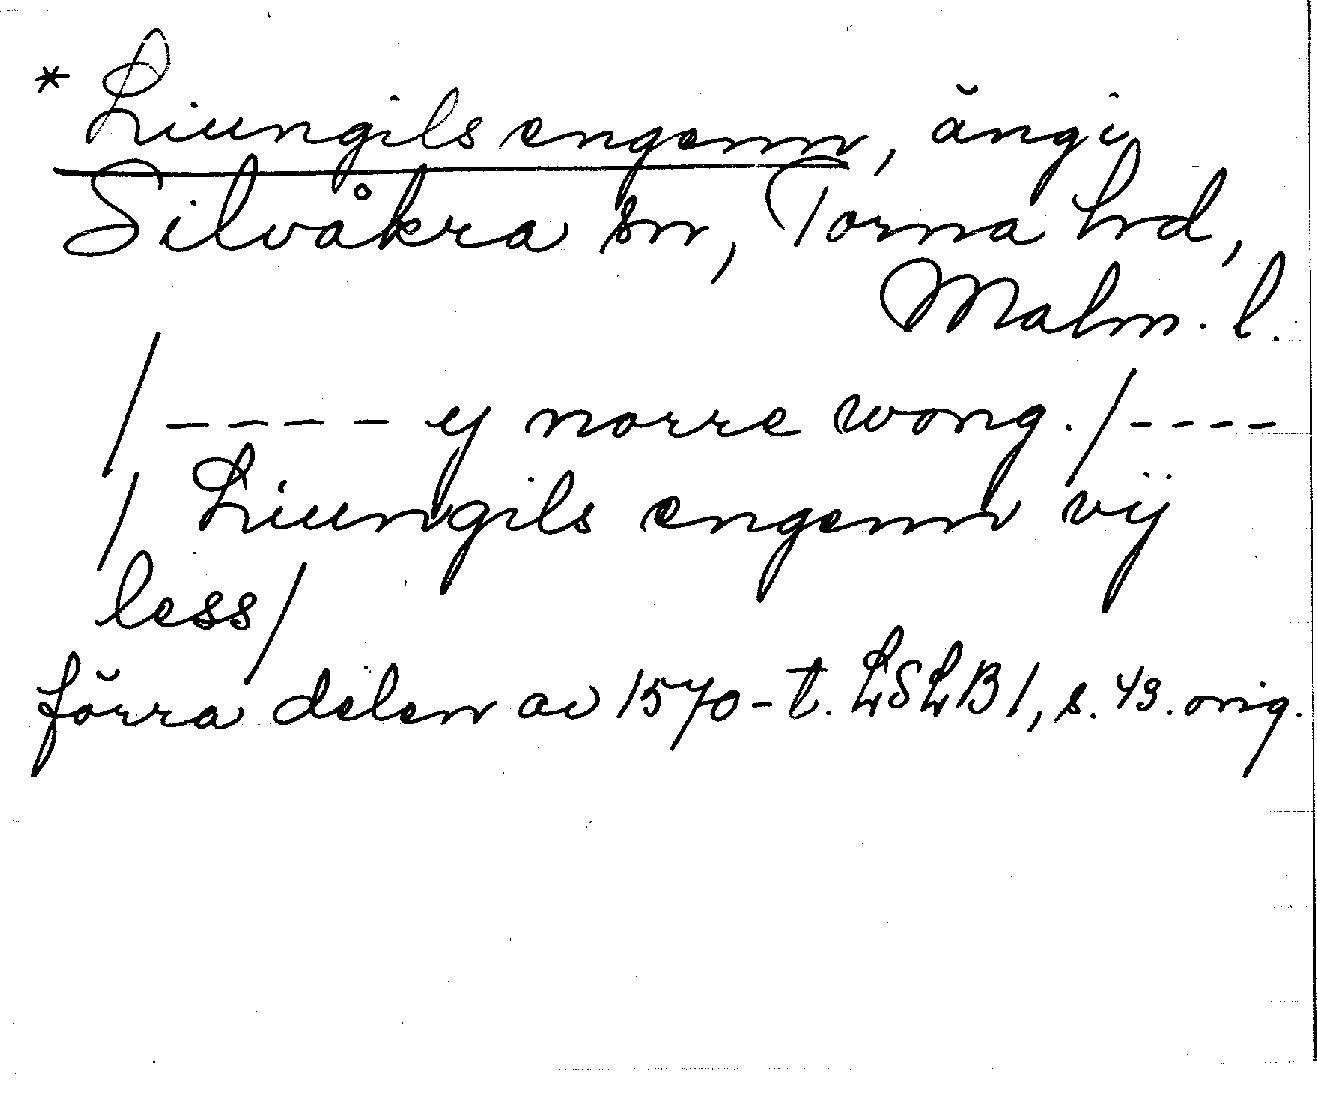 * Liungils engenn, äng i
Silvåkra sn, Torna hd,
Malm. l.
/ – – – – ej norre wong. / – – – –
/ Liungils engenn vij
less/
förra delen av 1570-t. LSLB1, s. 43. orig.